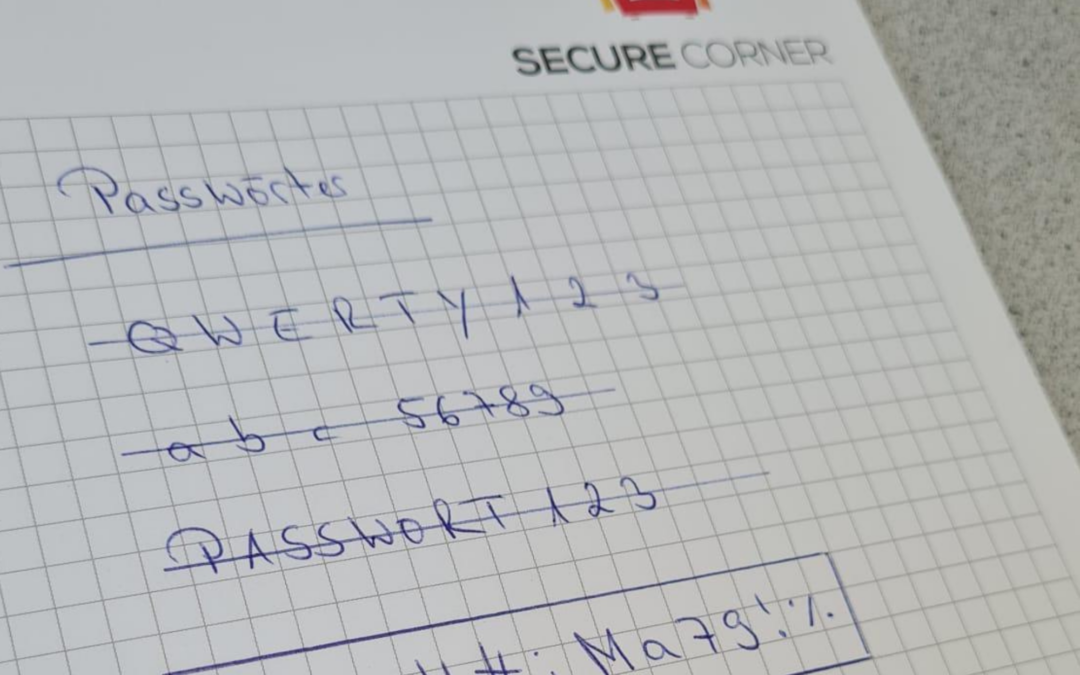 SECURE CORNER
Passwörter
QWERTY123
abc 56789
PASSWORT 123
#: Ma79!%